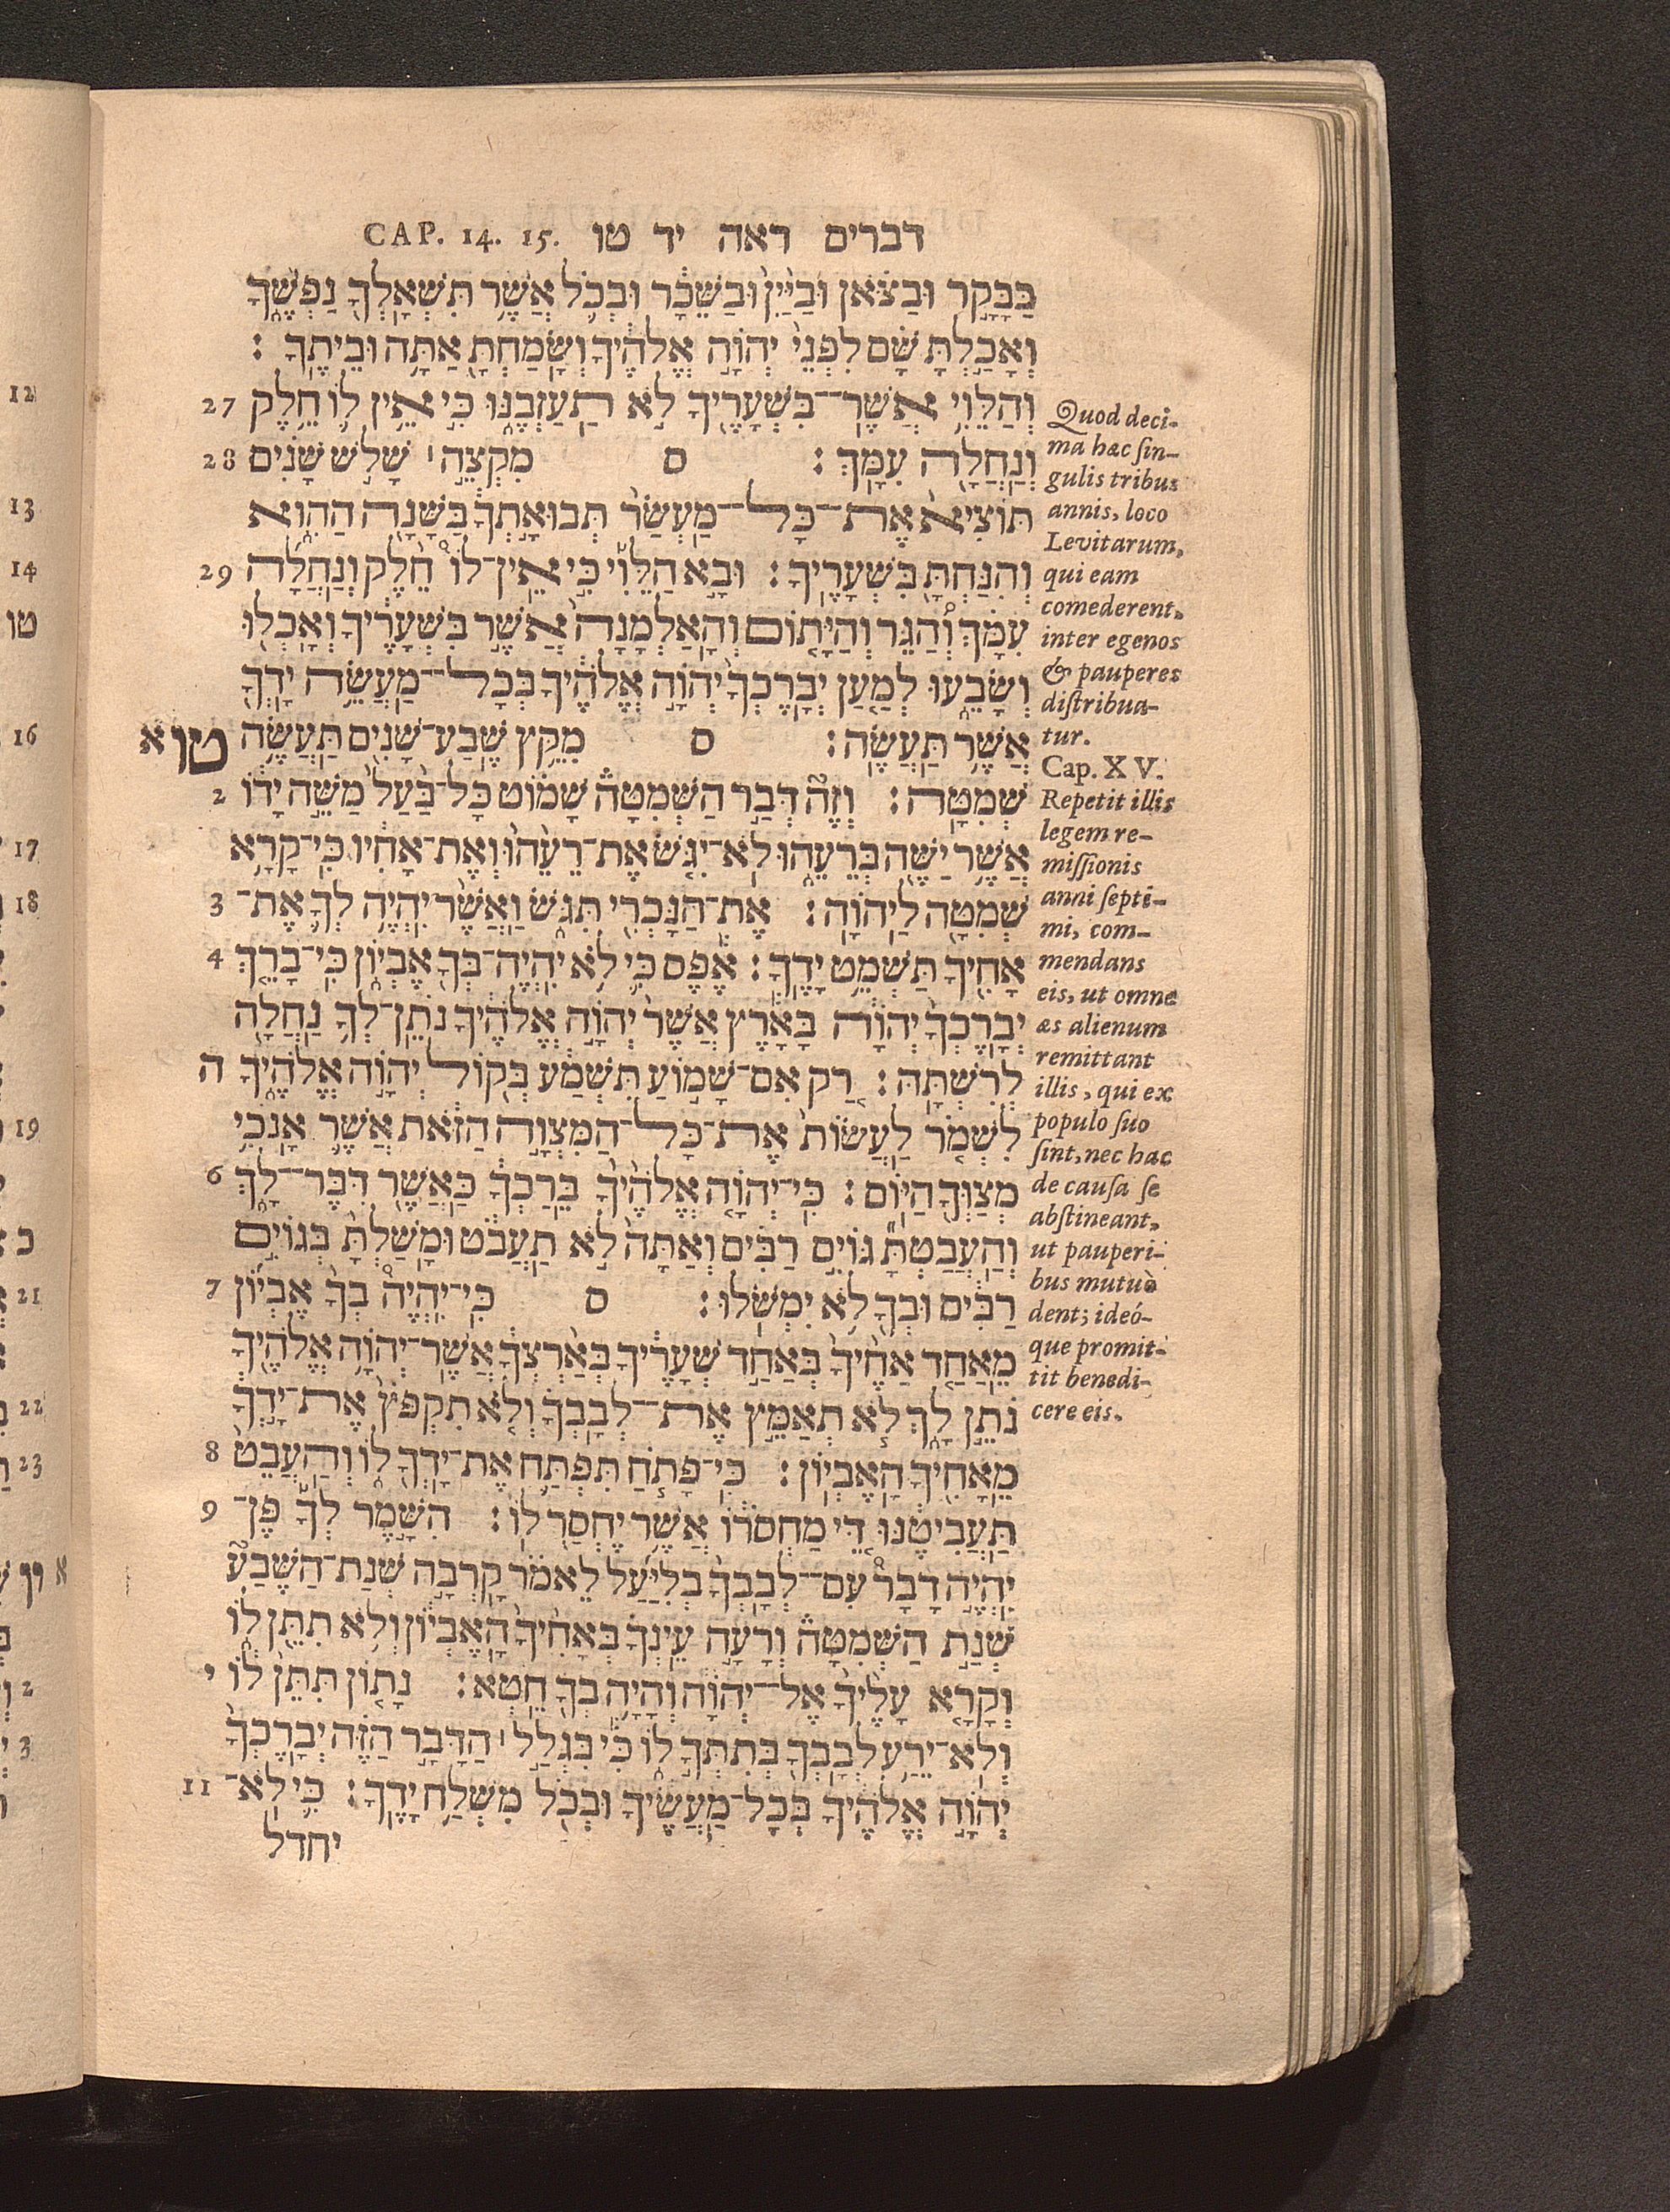 דברים ראה יד טו CAP. 14. 15.
בַּבָּקָר וּבַצֹּאן וּבַיַּיִן וּבַשֵּׁכָר וּבְכֹל אֲשֶׁר תִּשְׁאָלְךָ נַפְשֶׁךָ
וְאָכַלְתָּ שָּׁם לִפְנֵי יְהוָה אֱלֹהֶיךָ וְשָׂמַחְתָּ אַתָּה וּבֵיתֶךָ :
וְהַלֵּוִי אֲשֶׁר־בִּשְׁעָרֶיךָ לֹא תַעַזְבֶנּוּ כִּי אֵין לוֹ חֵלֶק 27
וְנַחֲלָה עִמָּךְ : ס מִקְצֵה ׀ שָׁלֹשׁ שָׁנִים 28
תּוֹצִיא אֶת־כָּל־מַעְשַׂר תְּבוּאָתְךָ בַּשָּׁנָה הַהִוא
וְהִנַּחְתָּ בִּשְׁעָרֶיךָ : וּבָא הַלֵּוִי כִּי אֵין־לוֹ חֵלֶק וְנַחֲלָה 29
עִמָּךְ וְהַגֵּר וְהַיָּתוֹם וְהָאַלְמָנָה אֲשֶׁר בִּשְׁעָרֶיךָ וְאָכְלוּ
וְשָׂבֵעוּ לְמַעַן יְבָרֶכְךָ יְהוָה אֱלֹהֶיךָ בְּכָל־מַעֲשֵׂה יָדְךָ
אֲשֶׁר תַּעֲשֶׂה : ס מִקֵּץ שֶׁבַע־שָׁנִים תַּעֲשֶׂה טו א
שְׁמִטָּה : וְזֶה דְּבַר הַשְּׁמִטָּה שָׁמוֹט כָּל־בַּעַל מַשֵּׁה יָדוֹ 2
אֲשֶׁר יַשֶּׁה בְּרֵעֵהוּ לֹא־יִגֹּשׂ אֶת־רֵעֵהוּ וְאֶת־אָחִיו כִּי־קָרָא
שְׁמִטָּה לַיהוָה : אֶת־הַנָּכְרִי תִּגֹּשׂ וַאֲשֶׁר יִהְיֶה לְךָ אֶת־ 3
אָחִיךָ תַּשְׁמֵט יָדֶךָ : אֶפֶס כִּי לֹא יִהְיֶה־בְּךָ אֶבְיוֹן כִּי־בָרֵךְ 4
יְבָרֶכְךָ יְהוָה בָּאָרֶץ אֲשֶׁר יְהוָה אֱלֹהֶיךָ נֹתֵן־לְךָ נַחֲלָה
לְרִשְׁתָּהּ : רַק אִם־שָׁמוֹעַ תִּשְׁמַע בְּקוֹל יְהוָה אֱלֹהֶיךָ ה
לִשְׁמֹר לַעֲשׂוֹת אֶת־כָּל־הַמִּצְוָה הַזֹּאת אֲשֶׁר אָנֹכִי
מְצַוְּךָ הַיּוֹם : כִּי־יְהוָה אֱלֹהֶיךָ בֵּרַכְךָ כַּאֲשֶׁר דִּבֶּר־לָךְ 6
וְהַעֲבַטְתָּ גּוֹיִם רַבִּים וְאַתָּה לֹא תַעֲבֹט וּמָשַׁלְתָּ בְּגוֹיִם
רַבִּים וּבְךָ לֹא יִמְשֹׁלוּ : ס כִּי־יִהְיֶה בְךָ אֶבְיוֹן 7
מֵאַחַד אַחֶיךָ בְּאַחַד שְׁעָרֶיךָ בְּאַרְצְךָ אֲשֶׁר־יְהוָה אֱלֹהֶיךָ
נֹתֵן לָךְ לֹא תְאַמֵּץ אֶת־לְבָבְךָ וְלֹא תִקְפֹּץ אֶת־יָדְךָ
מֵאָחִיךָ הָאֶבְיוֹן : כִּי־פָתֹחַ תִּפְתַּח אֶת־יָדְךָ לוֹ וְהַעֲבֵט 8
תַּעֲבִיטֶנּוּ דֵּי מַחְסֹרוֹ אֲשֶׁר יֶחְסַר לוֹ : הִשָּׁמֶר לְךָ פֶּן־ 9
יִהְיֶה דָבָר עִם־לְבָבְךָ בְלִיַּעַל לֵאמֹר קָרְבָה שְׁנַת־הַשֶּׁבַע
שְׁנַת הַשְּׁמִטָּה וְרָעָה עֵינְךָ בְּאָחִיךָ הָאֶבְיוֹן וְלֹא תִתֵּן לוֹ
וְקָרָא עָלֶיךָ אֶל־יְהוָה וְהָיָה בְךָ חֵטְא : נָתוֹן תִּתֵּן לוֹ י
וְלֹא־יֵרַע לְבָבְךָ בְּתִתְּךָ לוֹ כִּי בִּגְלַל ׀ הַדָּבָר הַזֶּה יְבָרֶכְךָ
יְהוָה אֱלֹהֶיךָ בְּכָל־מַעֲשֶׂיךָ וּבְכֹל מִשְׁלַח יָדֶךָ : כִּי לֹא־ 11
יחדל
Quod deci-
ma hæc sin-
gulis tribus
annis, loco
Levitarum,
qui eam
comederent,
inter egenos
& pauperes
distribua-
tur.
Cap. XV.
Repetit illis
legem re-
missionis
anni septi-
mi, com-
mendans
eis, ut omne
æs alienum
remittant
illis, qui ex
populo suo
sint, nec hac
de causa se
abstineant,
ut pauperi-
bus mutuò
dent; ideó-
que promit-
tit benedi-
cere eis.
12
13
14
טו
16
17
18
19
כ
21
22
23
2
3